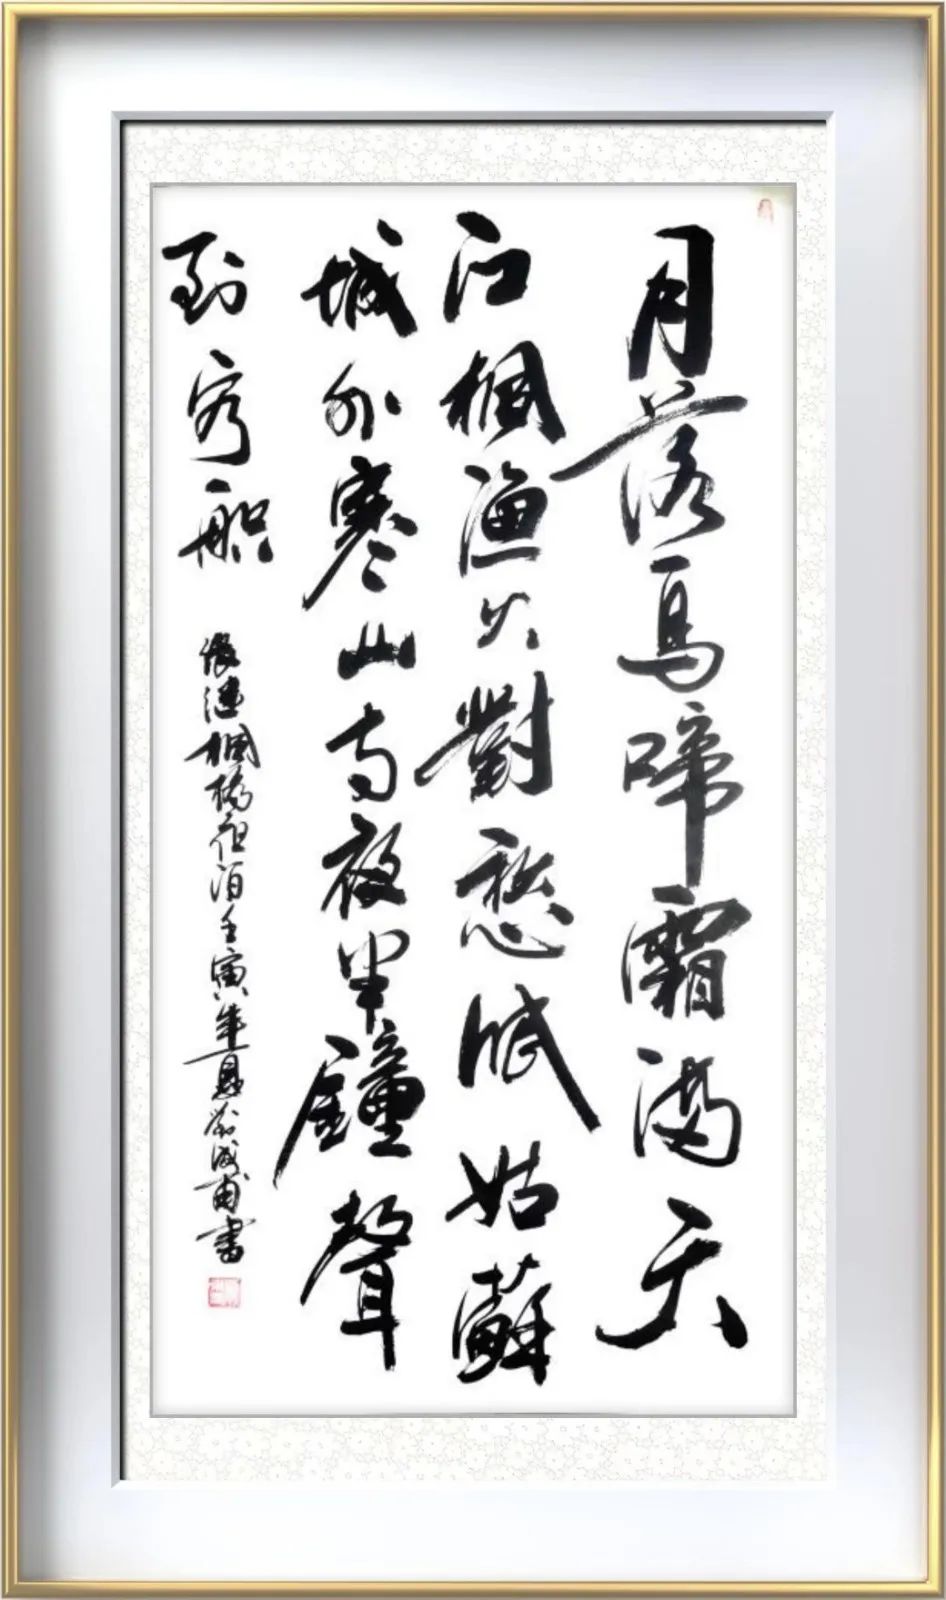 月落烏啼霜滿天
江楓漁火對愁眠姑蘇
城外寒山寺夜半鐘聲
到客船
張繼楓橋夜泊壬寅年夏書